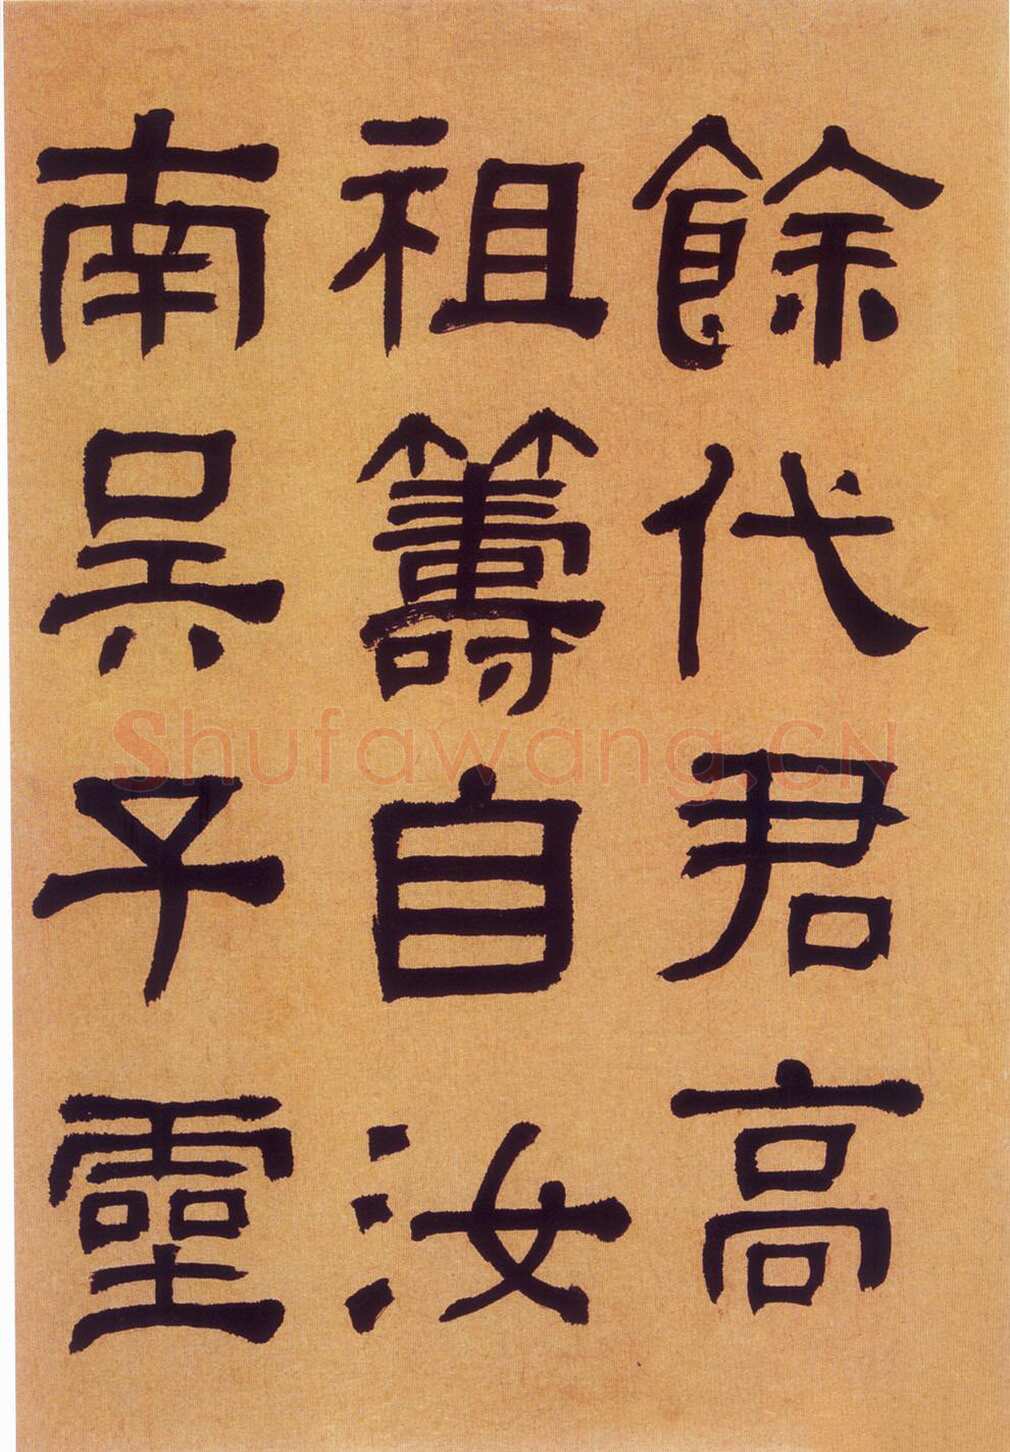 餘代君高
祖籌自汝
南吴子靈
Shufawang.CN